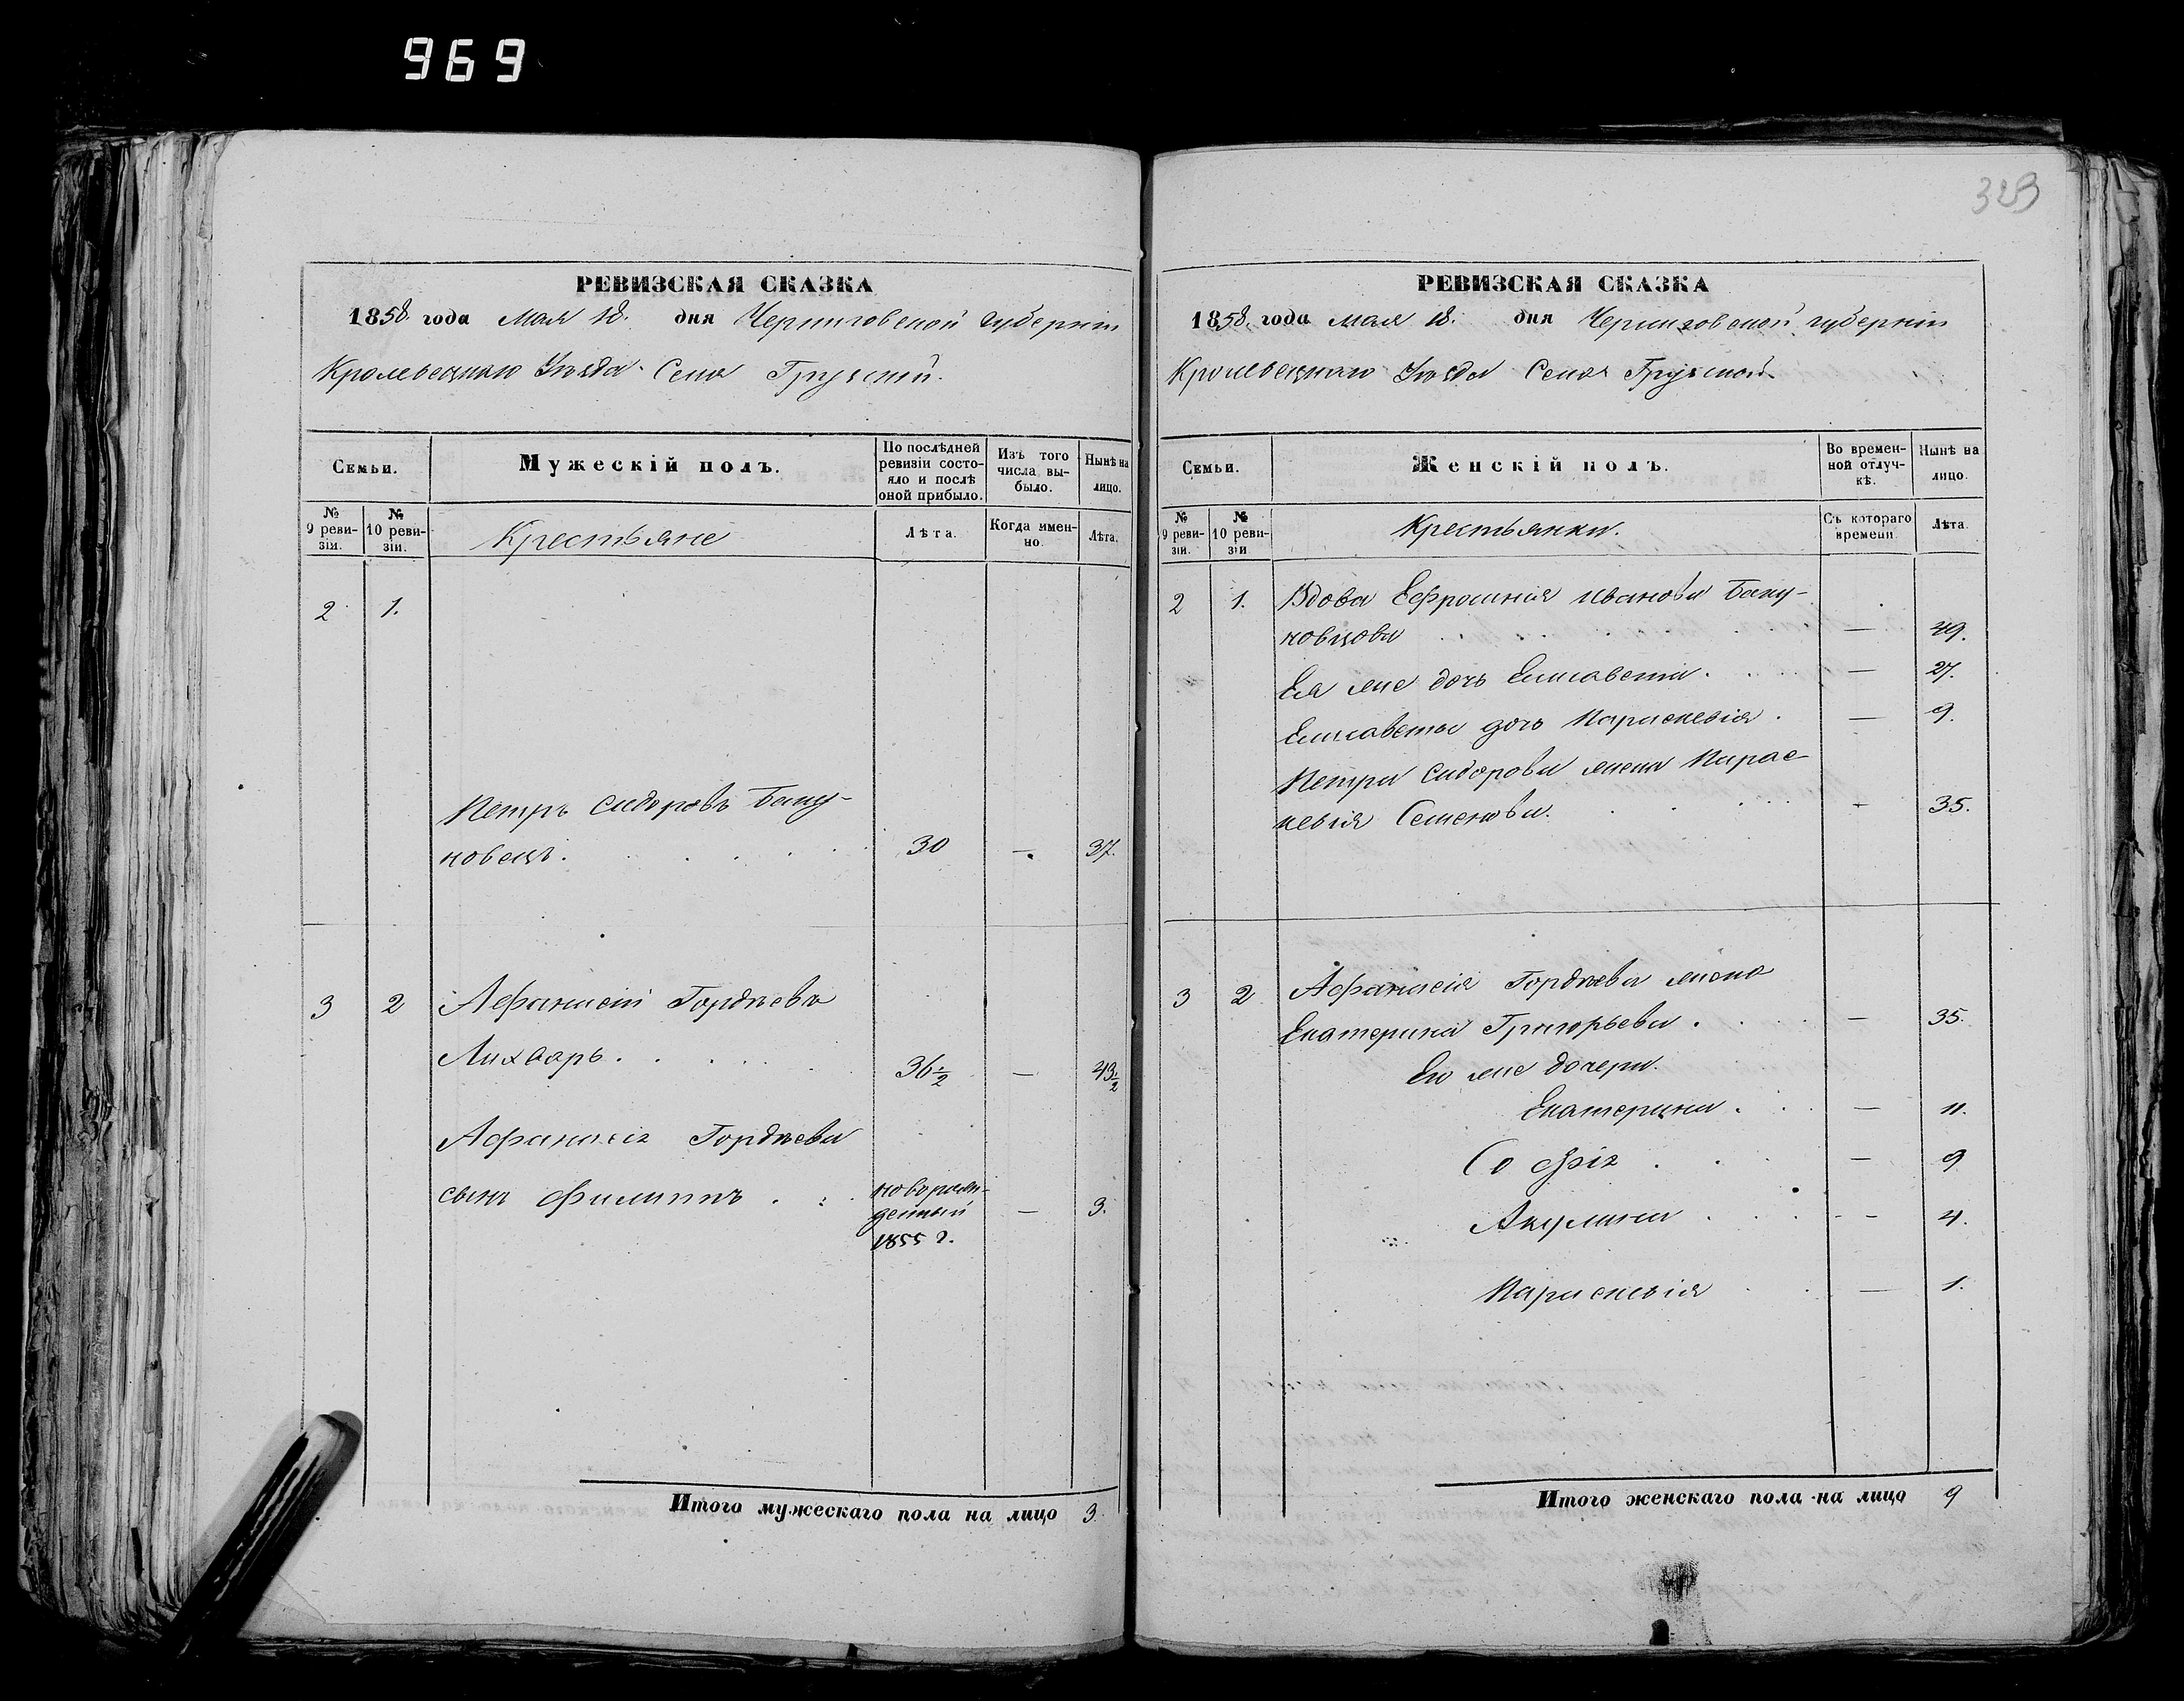 969
РЕВИЗСКАЯ СКАЗКА
1858. года Мая 18. дня Черниговской губерніи
Кролевецкаго Уѣзда Села Грузской.
Семьи.
Мужескій полъ.
По послѣдней ревизіи состо-
яло и послѣ оной прибыло.
Изъ того числа вы-
было.
Нынѣ на лицо.
№ 9 реви-
зіи.
№ 10 реви-
зіи.
Крестьяне
Лѣта.
Когда имен-
но.
Лѣта.
2 1.
Петръ Сидоровъ Баку-
новецъ. 30 — 37.
3 2 Афанасій Гордѣевъ
Лихваръ. 36½ — 43½
Афанасія Гордѣева
сынъ Филиппъ новорож-
денный — 3.
1855 г.
Итого мужескаго пола на лицо 3.
329
РЕВИЗСКАЯ СКАЗКА
1858. года мая 18. дня Черниговской губерніи
Кролевецкаго Уѣзда Села Грузской.
Семьи.
Женскій полъ.
Во времен-
ной отлуч-
кѣ.
Нынѣ на лицо.
№ 9 реви-
зіи.
№ 10 реви-
зіи
Крестьянки.
Съ котораго времени
Лѣта.
2 1. Вдова Ефросинія Иванова Баку-
новцова — 49.
Ея же дочь Елисавета — 27.
Елисаветы дочь Параскевія — 9.
Петра Сидорова жена Парас-
кевія Семенова. — 35.
3 2 Афанасія Гордѣева жена
Екатерина Григорьева — 35.
Его же дочери.
Екатерина — 11.
Софія — 9
Акулина — 4.
Параскевія — 1.
Итого женскаго пола на лицо 9